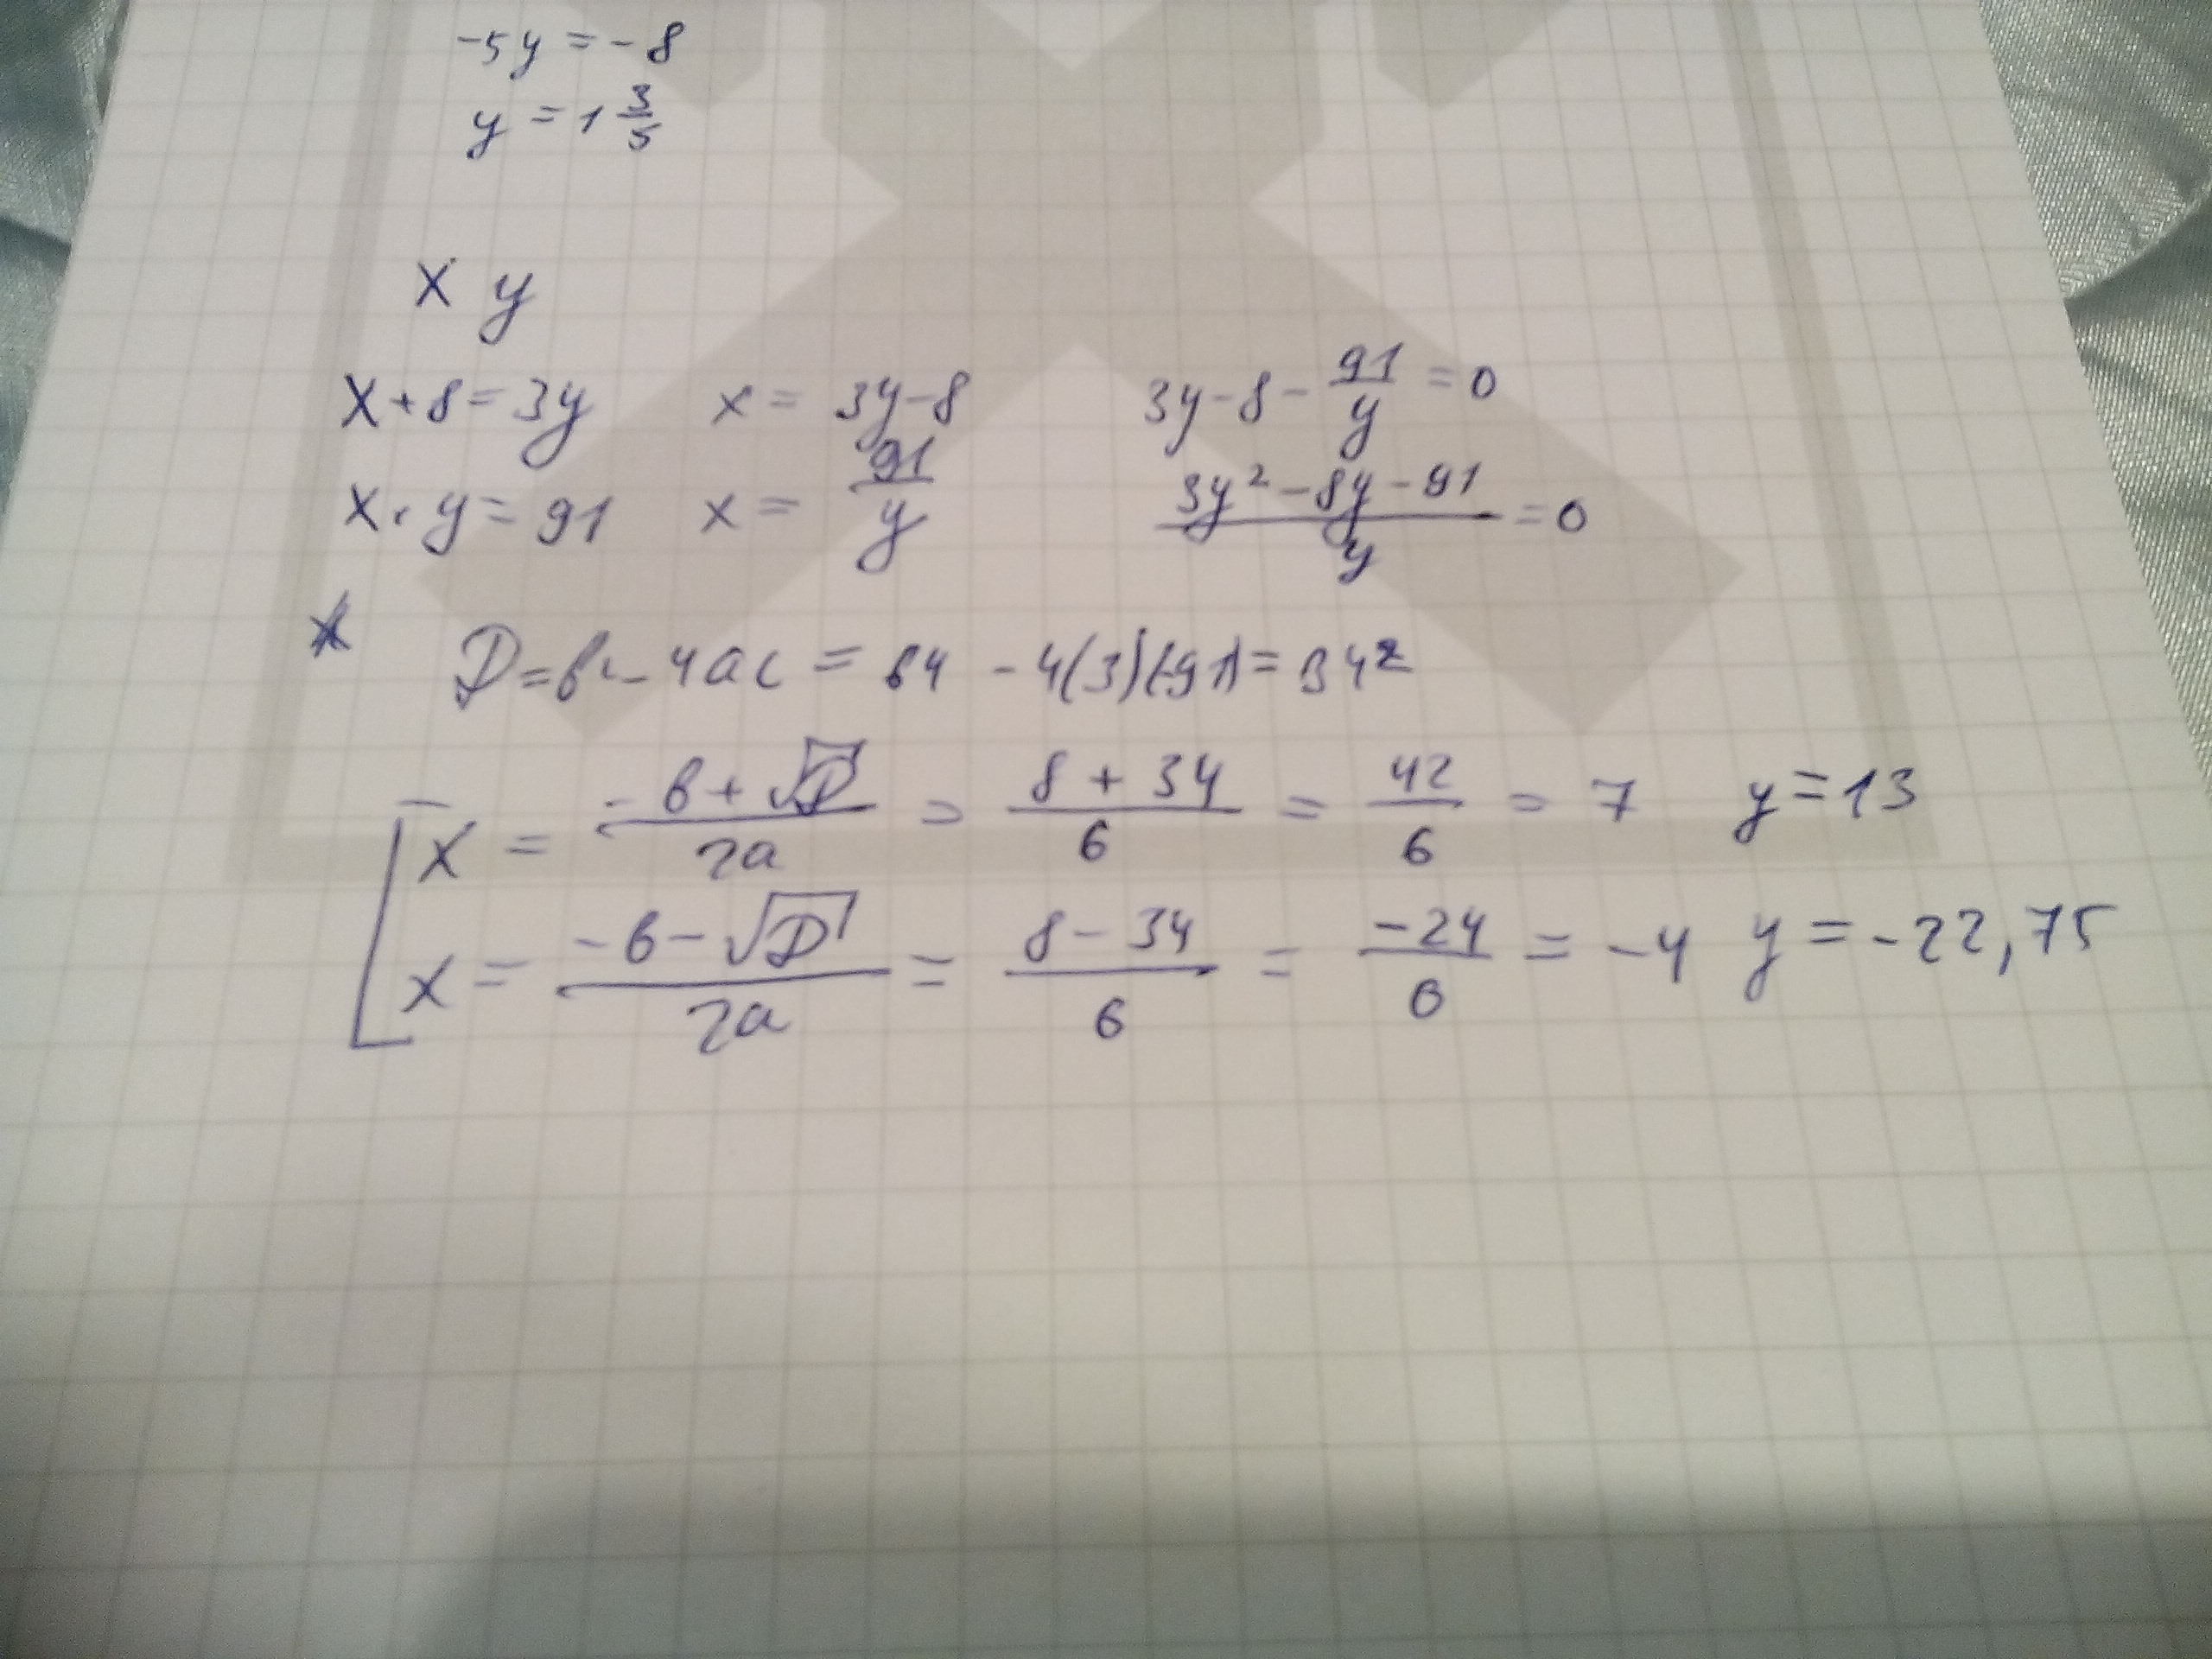 -5y = -8
y = 1 3/5
x y
x + 8 = 3y x = 3y - 8 3y - 8 - 91/y = 0
x · y = 91 x = 91/y (3y² - 8y - 91)/y = 0
D = в² - 4ac = 64 - 4(3)(-91) = 34²
x = (-в + √D)/2a = (8 + 34)/6 = 42/6 = 7 y = 13
x = (-в - √D)/2a = (8 - 34)/6 = -24/6 = -4 y = -22,75